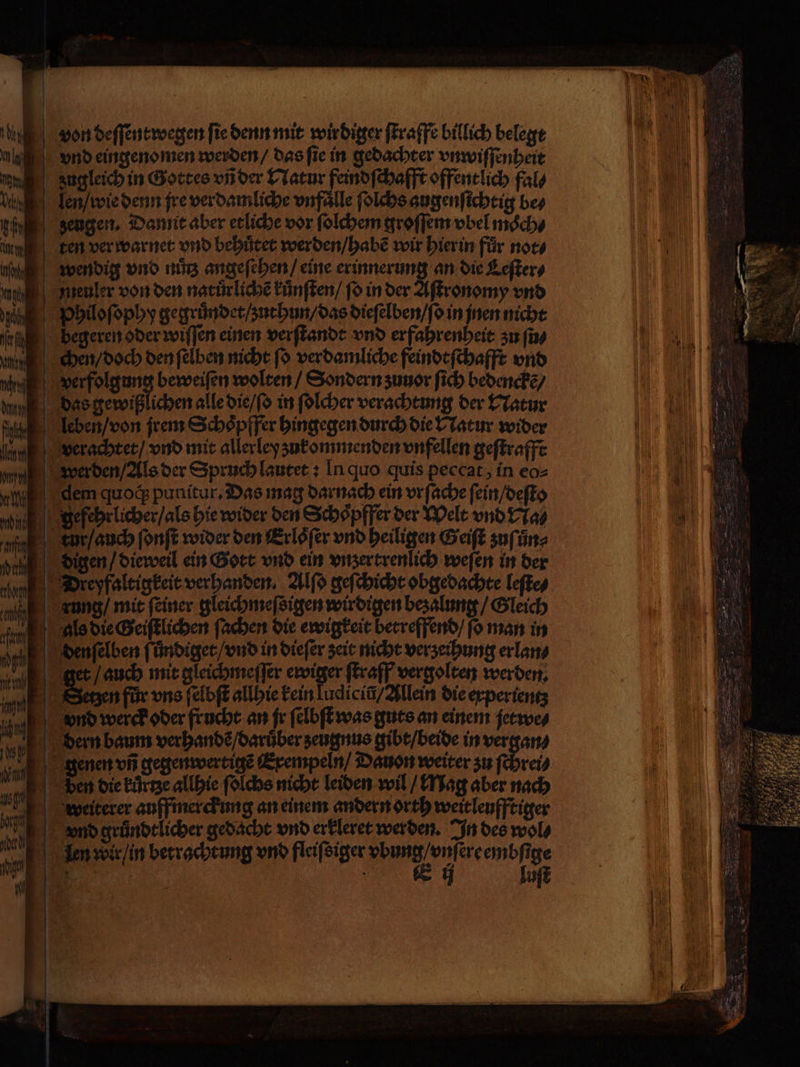 von deſſentwegen ſie denn mit wirdiger ſtraffe billich belegt
vnd eingenomen werden / das ſie in gedachter vnwiſſenheit
zugleich in Gottes vñ der Natur feindſchafft offentlich fal⸗
len/wie denn jre verdamliche vnfaͤlle ſolchs augenſichtig be⸗
zeugen. Damit aber etliche vor ſolchem groſſem vbel moͤch⸗
ten verwarnet vnd behuͤtet werden/habẽ wir hierin fuͤr not⸗
wendig vnd nuͤtz angeſehen / eine erinnerung an die Leſter⸗
meuler von den natuͤrlichẽ kuͤnſten/ ſo in der Aſtronomy vnd
Philoſophy gegruͤndet/zuthun/das dieſelben/ſo in jnen nicht
begeren oder wiſſen einen verſtandt vnd erfahrenheit zu ſu⸗
chen/doch denſelben nicht ſo verdamliche feindtſchafft vnd
verfolgung beweiſen wolten / Sondern zuuor ſich bedenckẽ/
das gewißlichen alle die/ſo in ſolcher verachtung der Natur
leben/von jrem Schoͤpffer hingegen durch die Natur wider
verachtet/ vnd mit allerley zukommenden vnfellen geſtrafft
werden/Als der Spruch lautet : In quo quis peccat, in eo⸗
dem quoqꝫ punitur. Das mag darnach ein vrſache ſein/deſto
gefehrlicher/als hie wider den Schoͤpffer der Welt vnd Na⸗
tur/auch ſonſt wider den Erloͤſer vnd heiligen Geiſt zuſuͤn⸗
digen / dieweil ein Gott vnd ein vnzertrenlich weſen in der
Dreyfaltigkeit verhanden. Alſo geſchicht obgedachte leſte⸗
rung/ mit ſeiner gleichmeſsigen wirdigen bezalung / Gleich
als die Geiſtlichen ſachen die ewigkeit betreffend/ ſo man in
denſelben ſuͤndiget/vnd in dieſer zeit nicht verzeihung erlan⸗
get / auch mit gleichmeſſer ewiger ſtraff vergolten werden.
Setzen fuͤr vns ſelbſt allhie kein Iudiciũ/Allein die experientz
vnd werck oder frucht an jr ſelbſt was guts an einem jetwe⸗
dern baum verhandẽ/daruͤber zeugnus gibt/beide in vergan⸗
genen vñ gegenwertigẽ Exempeln/ Dauon weiter zu ſchrei⸗
ben die kuͤrtze allhie ſolchs nicht leiden wil / Mag aber nach
weiterer auffmerckung an einem andern orth weitleufftiger
vnd gruͤndtlicher gedacht vnd erkleret werden. In des wol⸗
len wir/in betrachtung vnd fleiſsiger vbung/vnſere embſige
E ij luſt